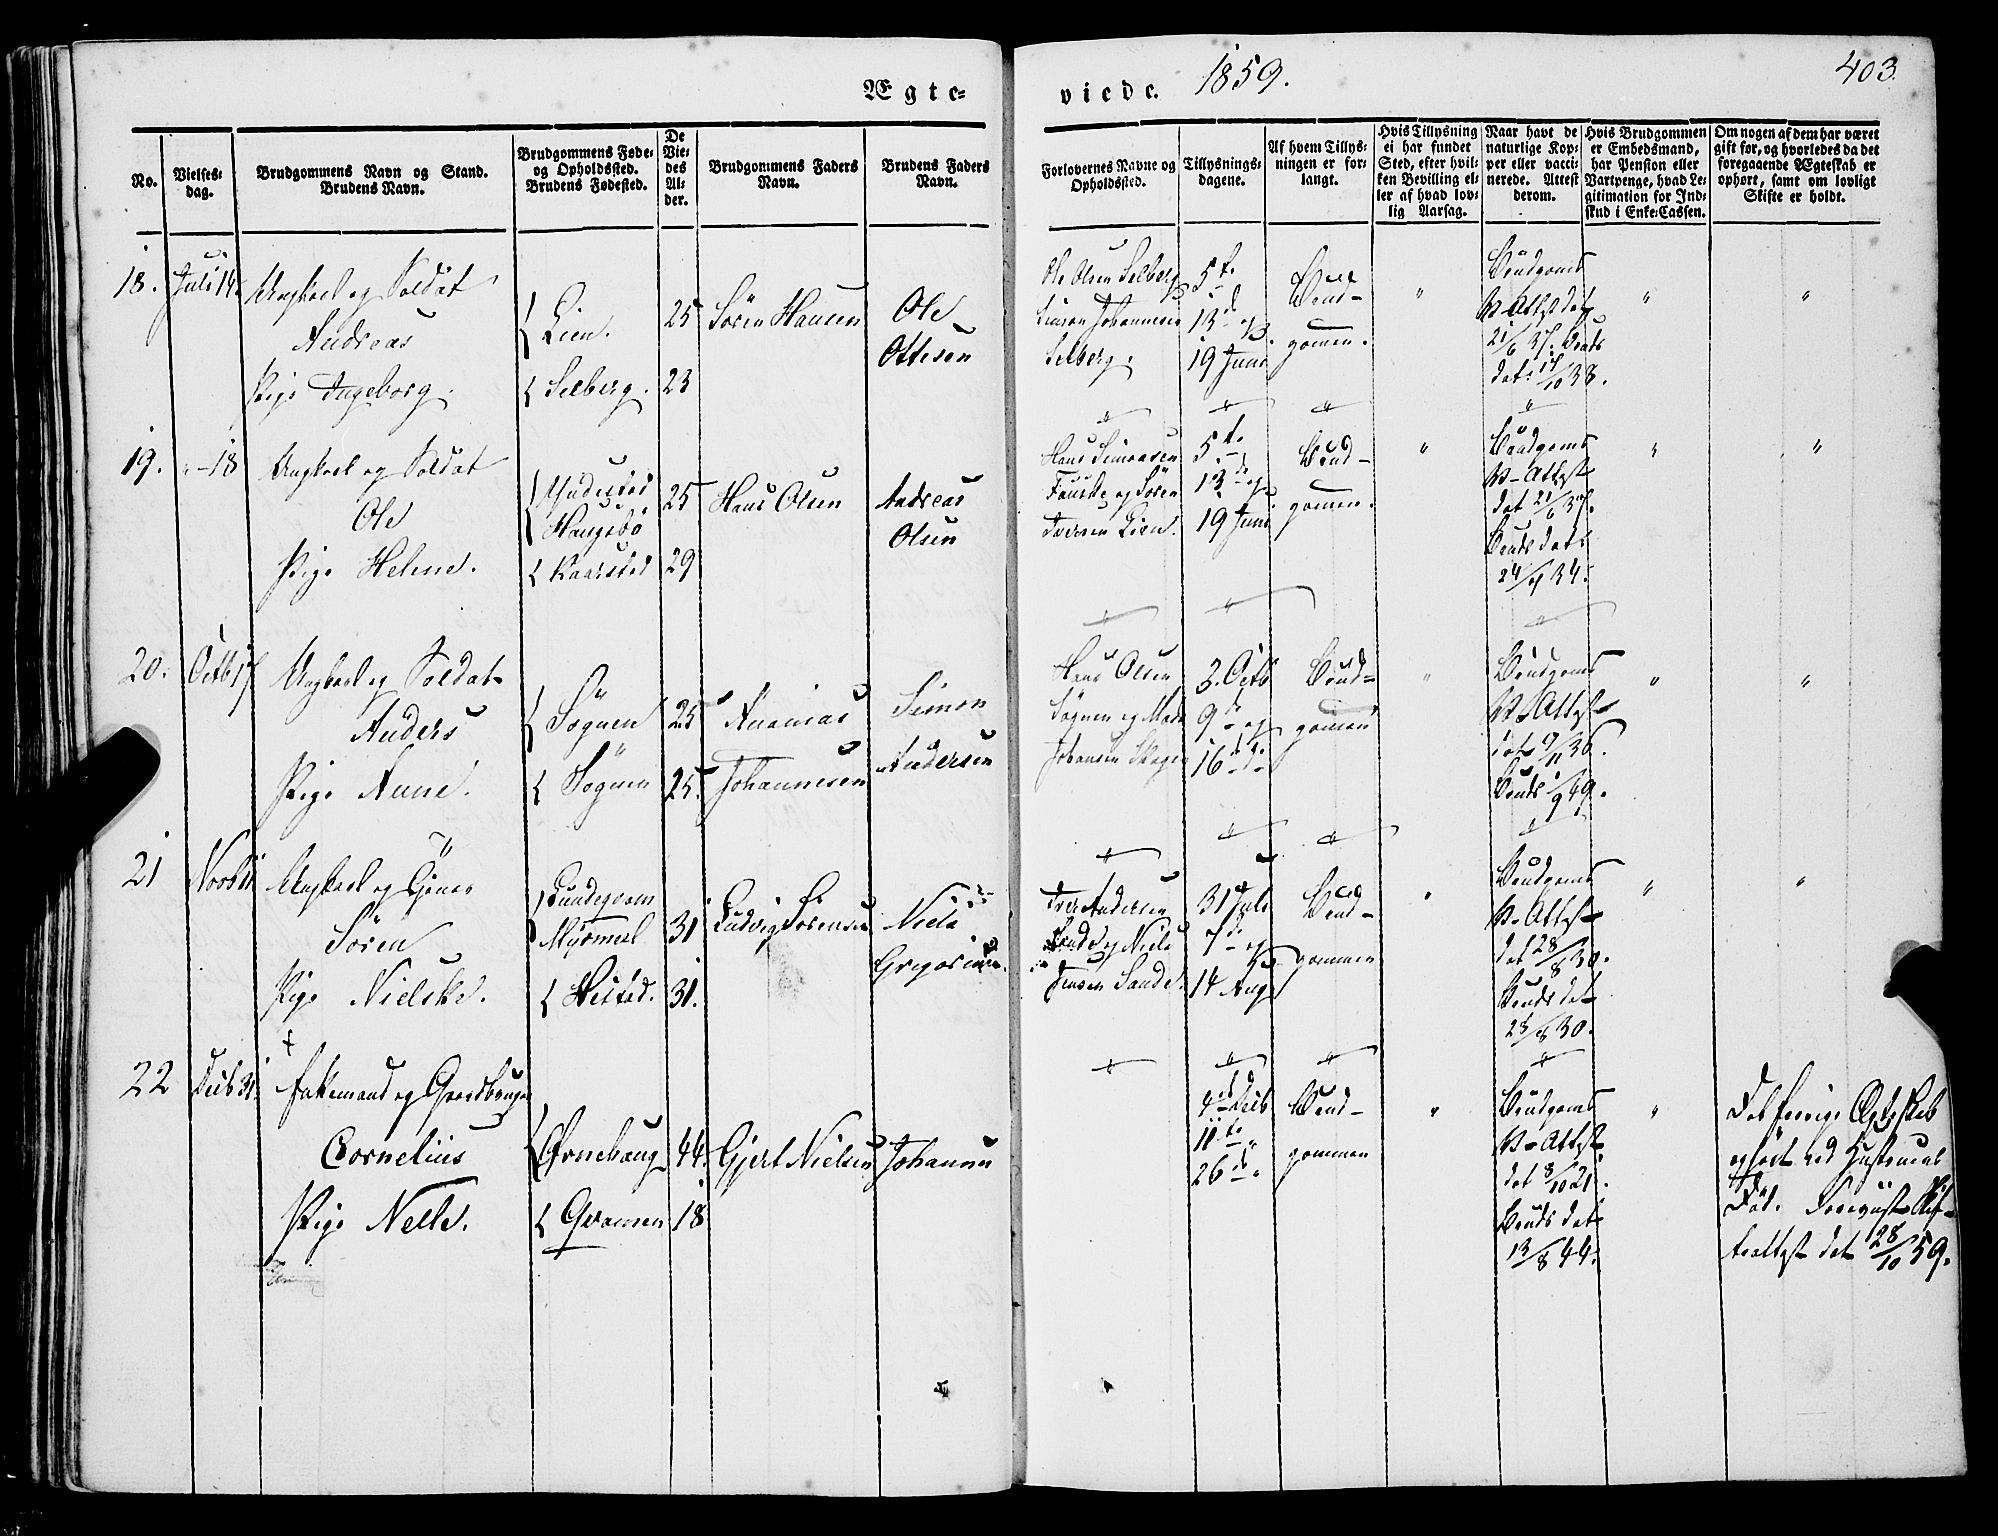 Ægte-
viede. 1859. 403.
No.
Vielses-
dag.
Brudgommens Navn og Stand.
Brudens Navn.
Brudgommens Føde-
og Opholdssted.
Brudens Fødested.
De
Vie-
des
Al-
der.
Brudgommens Faders
Navn.
Brudens Faders
Navn.
Forlovernes Navne og
Opholdssted.
Tillysnings-
dagene.
Af hvem Tillys-
ningen er for-
langt.
Hvis Tillysning
ei har fundet
Sted, efter hvil-
ken Bevilling el-
ler af hvad lov-
lig Aarsag.
Naar havt de
naturlige Kop-
per eller vacci-
nerede. Attest
derom.
Hvis Brudgommen
er Embedsmand,
har Pension eller
Vartpenge, hvad Le-
gitimation for Ind-
skud i Enke-Cassen.
Om nogen af dem har været
gift før, og hvorledes da det
foregaaende Ægteskab er
ophørt, samt om lovligt
Skifte er holdt.
18. Juli 14.
Ungkarl og Soldat
Andreas
Pige Ingeborg.
Lien.
Selberg.
25
23
Sören Hansen
Ole
Ottesen
Ole Olsen Selberg
Simon Johannesen
Selberg.
5te
13de og
19 Juni
Brud-
gomen.
"
Brudgoms
V-Attest dat
21/6 37. Bruds
dat: 17/10 38.
"
"
19. " - 18
Ungkarl og Soldat
Ole
Pige Helene.
Haugebö
Kaarstad
25
29
Hans Olsen
Andreas
Olsen
Hans Simonsen
Fauske og Sören
Iversen Lien.
5te
13de og
19 Juni
Brud-
gomen.
"
Brudgoms
V-Attest
dat 21/6 37.
Bruds dat
24/9 34.
"
"
20. Octb 17
Ungkarl og Soldat
Anders
Pige Anne.
Sögnen
Sögnen
25
25.
Ananias
Johannesen
Simon
Andersen
Hans Olsen
Sögnen og Mads
Johansen Skogen
2. Octb
9de og
16de do
Brud-
gomen
"
Brudgoms
V-Attest
dat 9/11 36.
Bruds 1/9 49.
"
"
21 Novb 11
Ungkarl og Gjörer
Sören
Pige Nielske.
Myrmel
Hestad.
31
31.
Ludvig Sörensen
Niels
Gregoriusen.
Iver Andersen
Sande og Niels
Jensen Sande.
31 Juli
7de og
14 Aug
Brud-
gommen
"
Brudgoms
V-Attest
dat 28/8 30.
Bruds dat
28/8 30.
"
"
22 Decb 31.
Enkemand og Gaardbruger
Cornelius
Pige Nelle.
Ørnehaug
Gramen
44.
18
Gjert Nielsen
Johannes
4de Decb
11te "
26de "
Brud-
gommen
"
Brudgoms
V-Attest
dat 8/10 21.
Bruds dat
13/8 44.
"
Det forrige Ægteskab
ophört ved Hustruens
Död. Foreviist Skif-
teattest dat 28/10 59.